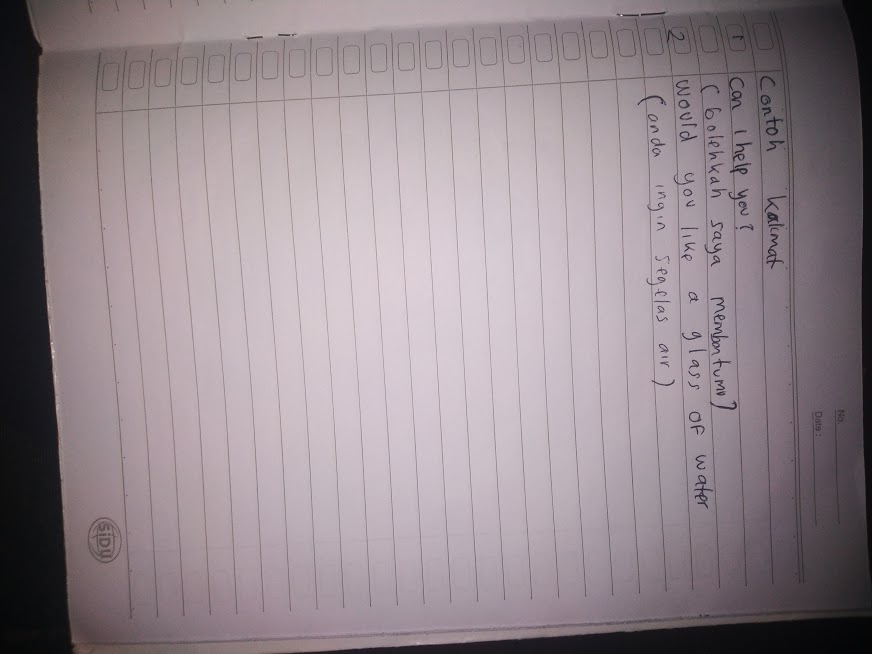 No.
Date :
Contoh kalimat
1 Can I help you?
(bolehkah saya membantumu)
2 Would you like a glass of water
(anda ingin segelas air)
SiDU